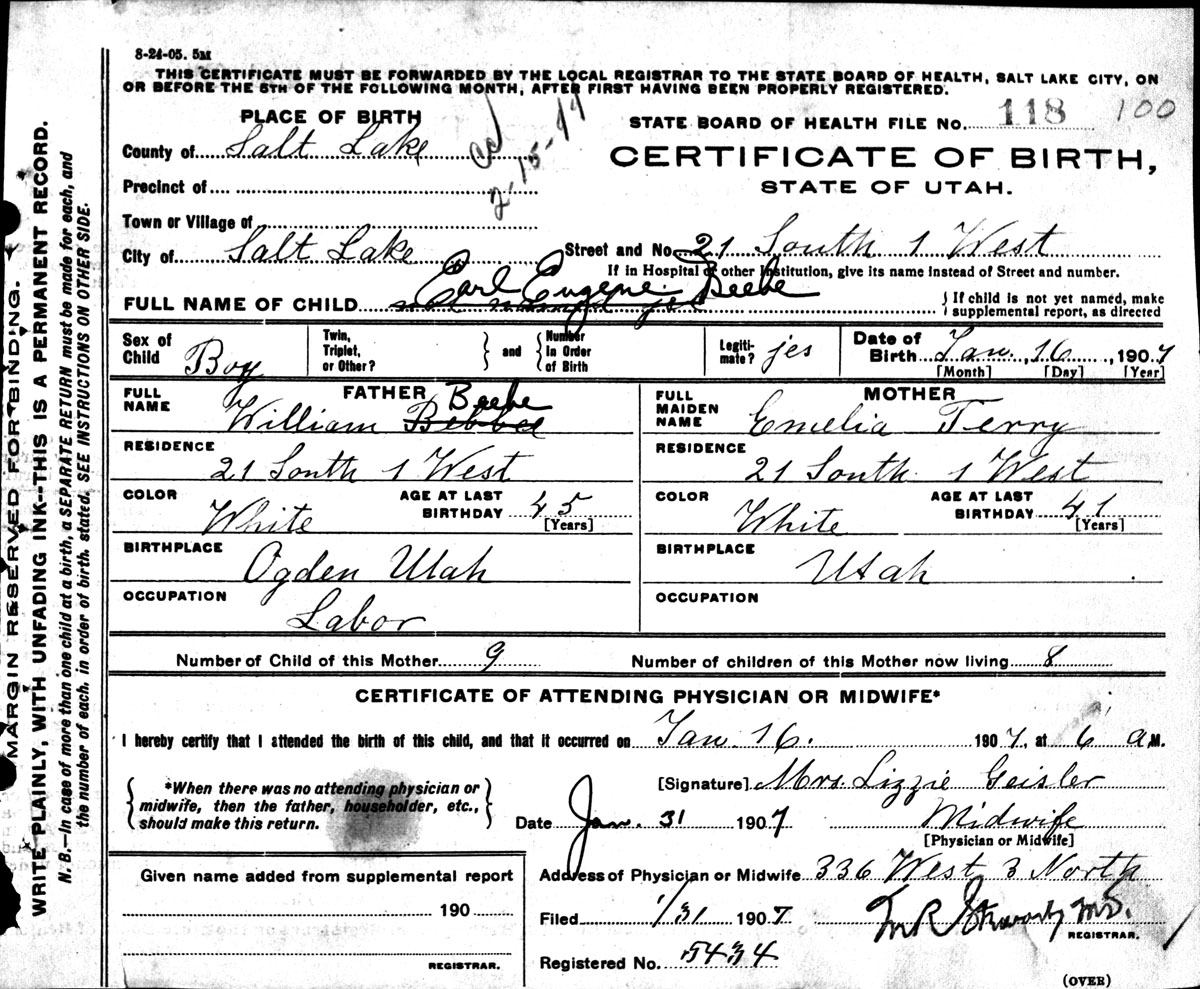 8-24-05. 5M
THIS CERTIFICATE MUST BE FORWARDED BY THE LOCAL REGISTRAR TO THE STATE BOARD OF HEALTH, SALT LAKE CITY, ON
OR BEFORE THE 5TH OF THE FOLLOWING MONTH, AFTER FIRST HAVING BEEN PROPERLY REGISTERED.
PLACE OF BIRTH
STATE BOARD OF HEALTH FILE No. 118 100
County of Salt Lake
2-15-44
CERTIFICATE OF BIRTH,
STATE OF UTAH.
Precinct of
Town or Village of
City of Salt Lake Street and No. 21 South 1 West
If in Hospital or other Institution, give its name instead of Street and number.
Earl Eugene Beebe
FULL NAME OF CHILD not named yet
If child is not yet named, make
supplemental report, as directed
Sex of Child Boy
Twin, Triplet, or Other? and Number In Order of Birth
Legitimate? yes
Date of Birth Jan. 16, 1907
[Month] [Day] [Year]
FATHER
Beebe
FULL NAME William Bebbee
RESIDENCE
21 South 1 West
COLOR White AGE AT LAST BIRTHDAY 45
[Years]
BIRTHPLACE
Ogden Utah
OCCUPATION
Labor
MOTHER
FULL MAIDEN NAME Emelia Terry
RESIDENCE
21 South 1 West
COLOR White AGE AT LAST BIRTHDAY 41
[Years]
BIRTHPLACE
Utah
OCCUPATION
Number of Child of this Mother 9 Number of children of this Mother now living 8
CERTIFICATE OF ATTENDING PHYSICIAN OR MIDWIFE*
I hereby certify that I attended the birth of this child, and that it occurred on Jan. 16. 1907, at 6 A M.
*When there was no attending physician or
midwife, then the father, householder, etc.,
should make this return.
[Signature] Mrs. Lizzie Geisler
Date Jan. 31 1907 Midwife
[Physician or Midwife]
Given name added from supplemental report
190
REGISTRAR.
Address of Physician or Midwife 336 West 3 North
Filed 1/31 1907 M.D.
REGISTRAR.
Registered No. 5434
(OVER)
MARGIN RESERVED FOR BINDING.
WRITE PLAINLY, WITH UNFADING INK--THIS IS A PERMANENT RECORD.
N. B.—In case of more than one child at a birth, a SEPARATE RETURN must be made for each, and
the number of each, in order of birth, stated. SEE INSTRUCTIONS ON OTHER SIDE.